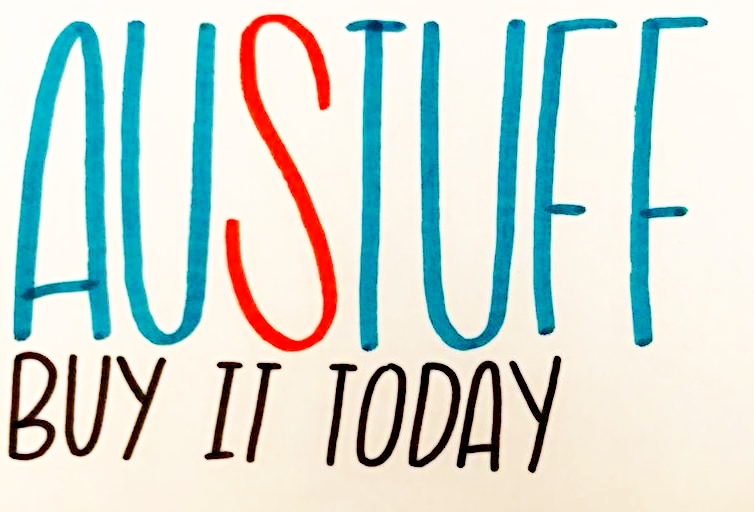 AUSTUFF
BUY IT TODAY